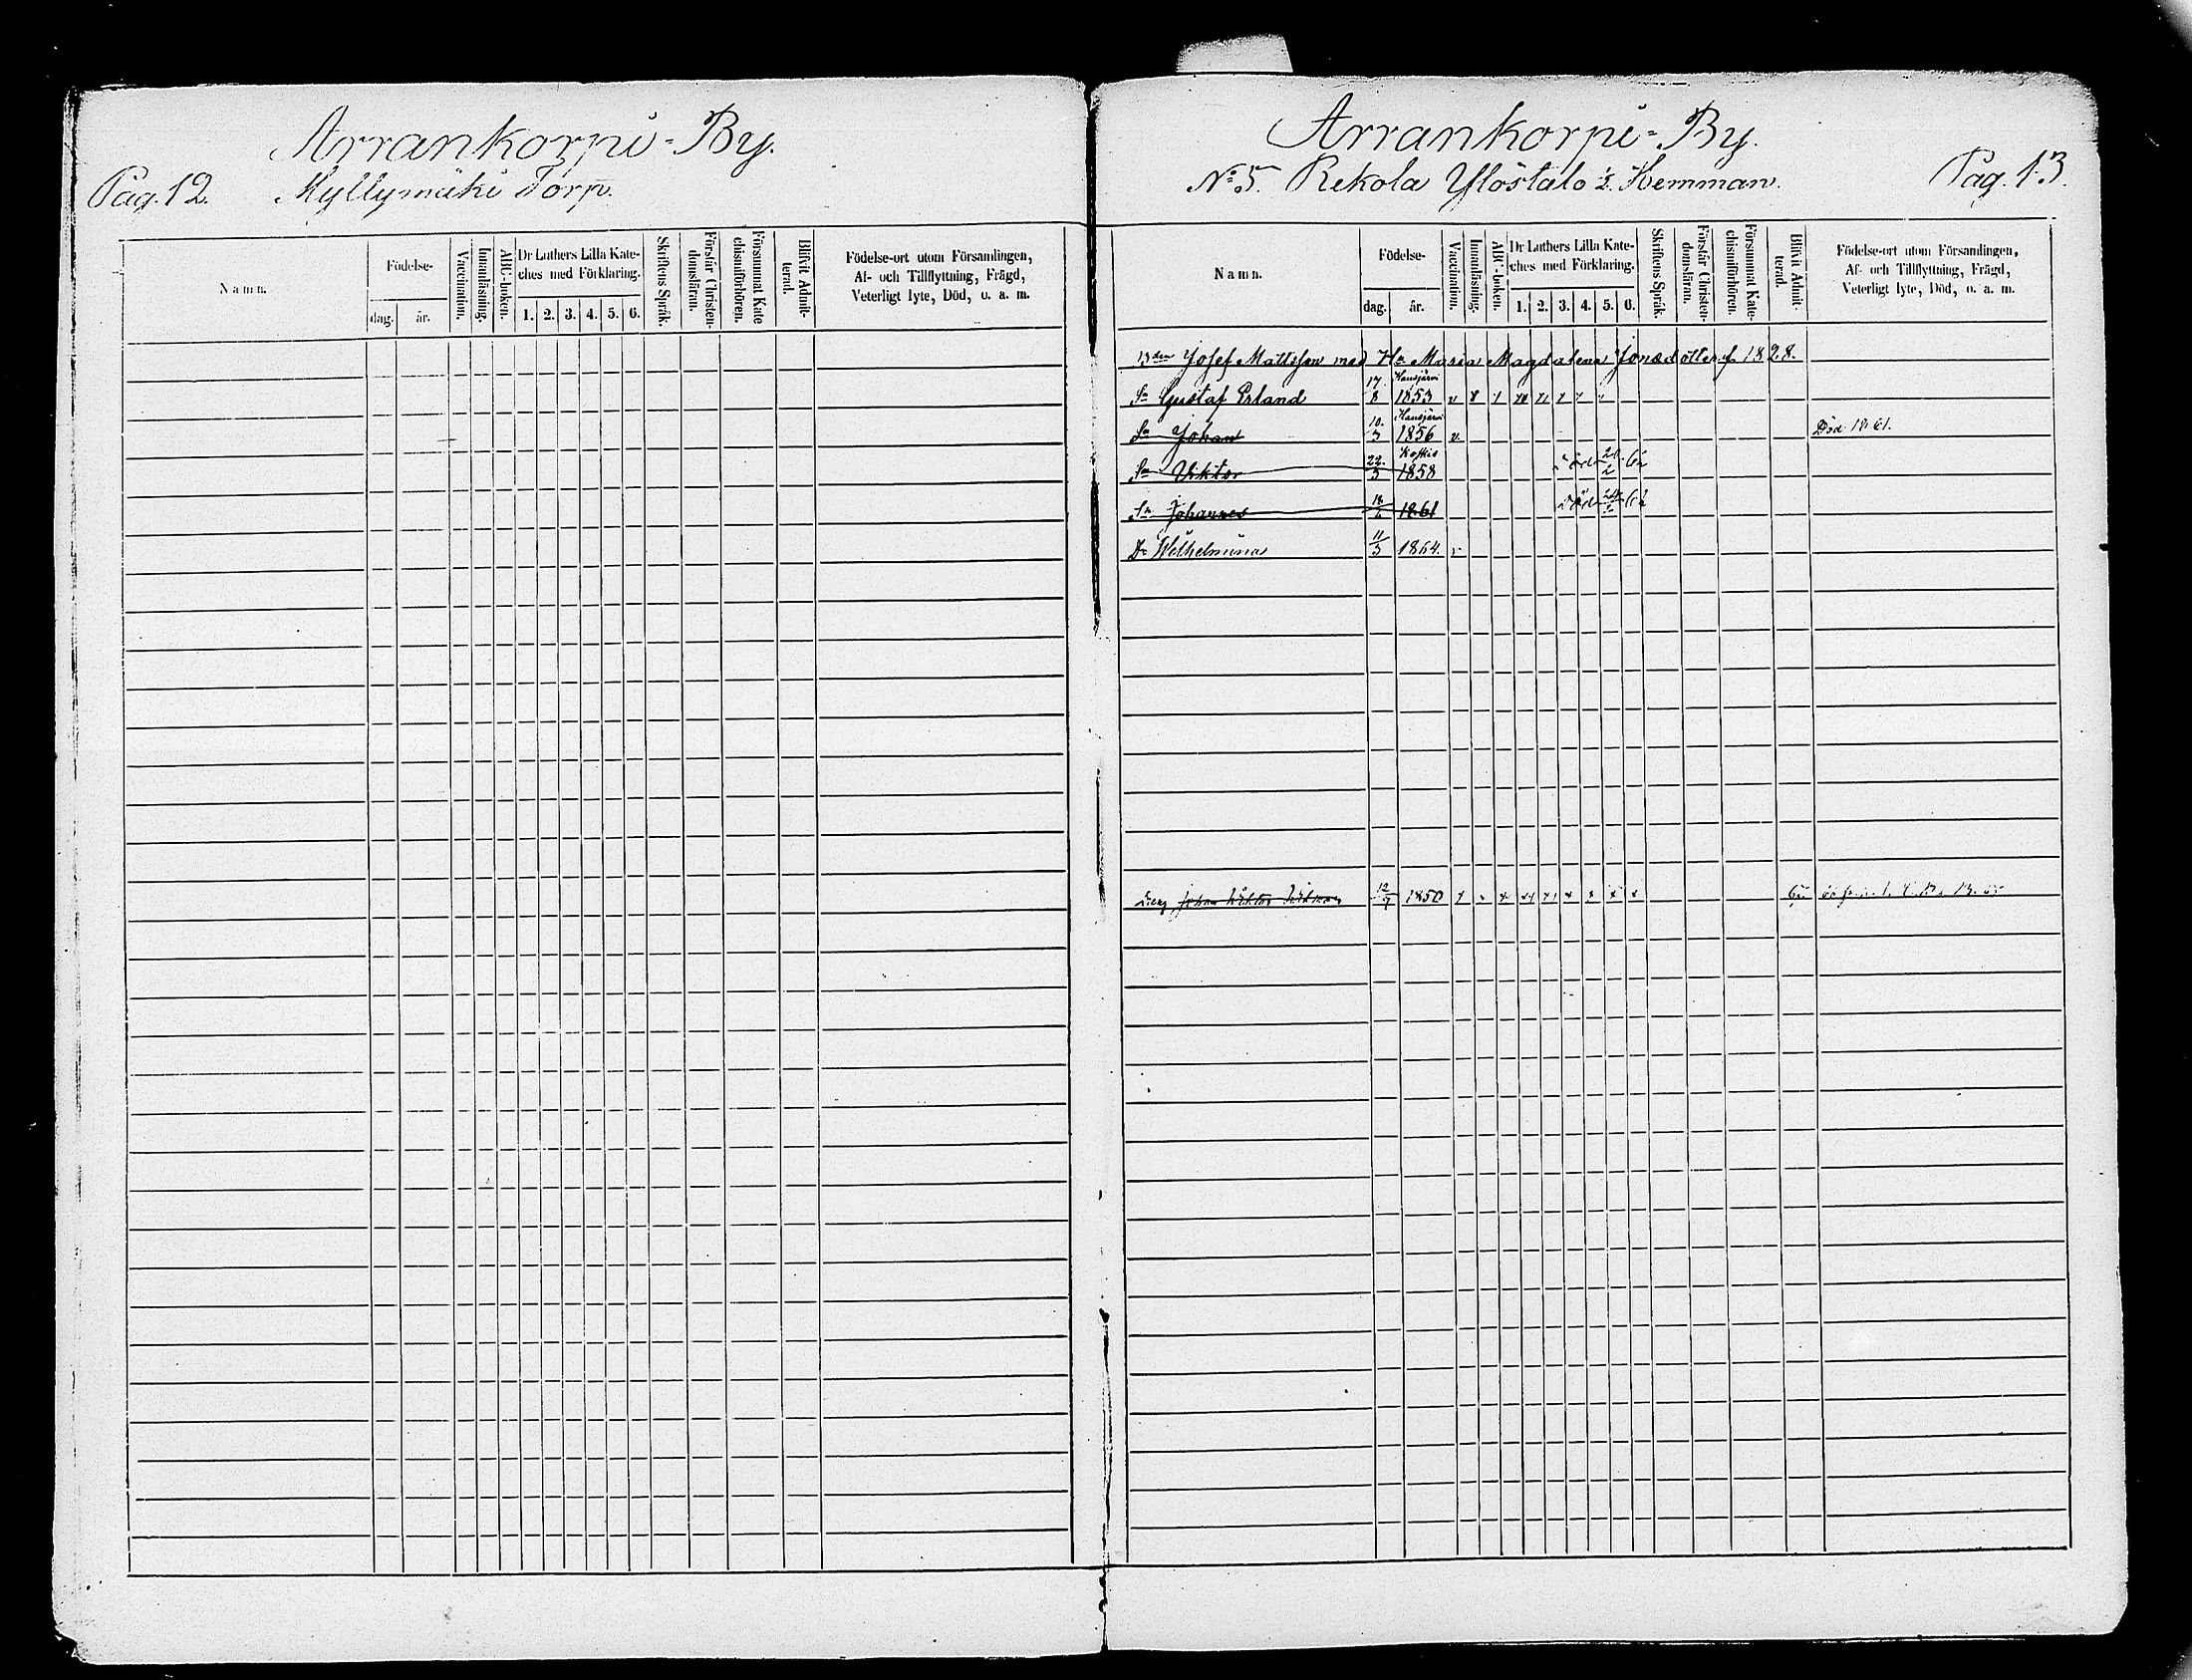 Arrankorpi-By.
Pag. 12. Myllymäki Torp.
Namn. Födelse- dag. år. Vaccination. Innanläsning. ABC-boken. Dr Luthers Lilla Kateches med Förklaring. 1. 2. 3. 4. 5. 6. Skriftens Språk. Förstår Christendomsläran. Försummat Katechismiförhören. Blifvit Admitterad. Födelse-ort utom Församlingen, Af- och Tillflyttning, Frägd, Veterligt lyte, Död, o. a. m.
Arrankorpi-By.
No 5. Rekola Ylöstalo ½ Hemman. Pag. 13.
Namn. Födelse- dag. år. Vaccination. Innanläsning. ABC-boken. Dr Luthers Lilla Kateches med Förklaring. 1. 2. 3. 4. 5. 6. Skriftens Språk. Förstår Christendomsläran. Försummat Katechismiförhören. Blifvit Admitterad. Födelse-ort utom Församlingen, Af- och Tillflyttning, Frägd, Veterligt lyte, Död, o. a. m.
Josef Mattsson med Hu Maria Magdalena Jonædotter f. 1828.
Sn Gustaf Erland 17/8 Hausjärvi 1853
Sn Johan 10/3 Hausjärvi 1856 Död 1861.
Sn Viktor 22/3 Koskis 1858 Död 62
Sn Johannes 1861 Död 62
Dr Wilhelmina 11/3 1864.
Johan Viktor 12/7 1850